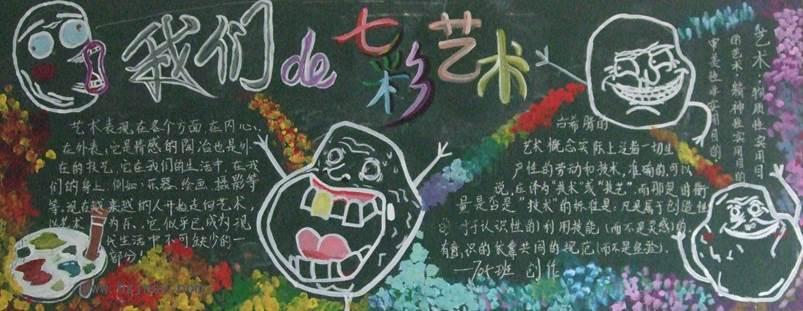 我们de七彩艺术
艺术表现在各个方面,在内心、
在外表,它是情感的陶冶也是外
在的技艺,它在我们的生活中,在我
们的身上,例如:乐器、绘画、摄影等
等,现在越来越的人开始走向艺术,
以艺术为乐,它似乎已成为现
代生活中不可缺少的一
部分!
古希腊的
艺术概念实际上泛着一切生
产性的劳动和技术,准确的,可以
说,应译为“技术”或“技艺”,而那是的衡
量是否是“技术”的标准是:凡是属于创造性
的(对于认识性的)利用技能(而不是灵感)的,
有意识的依靠共同的规范(而不是经验)。
班 创作
艺术:物质性实用目
的艺术、精神性实用目的
审美性非实用目的